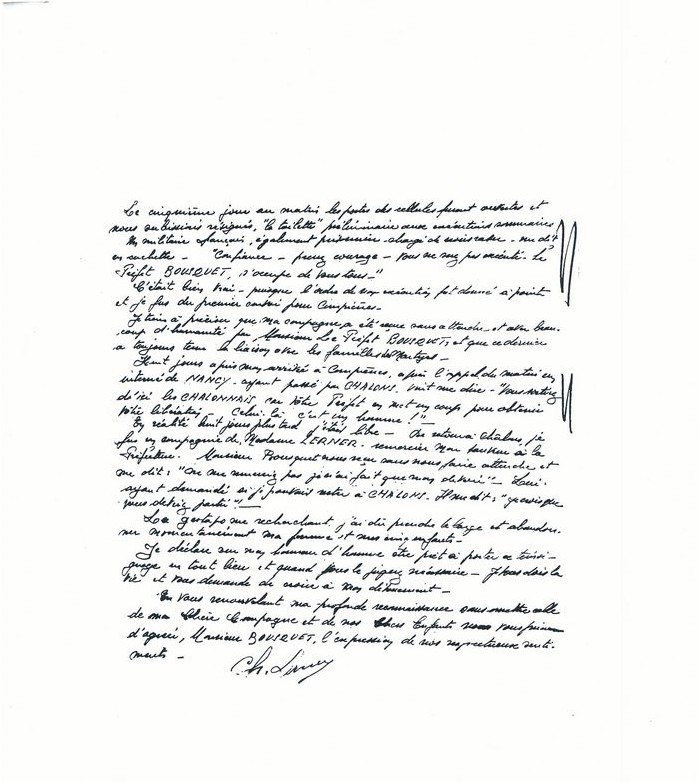 Le cinquième jour au matin les portes des cellules furent ouvertes et
nous subissions résignés, "la toilette" préliminaire aux exécutions sommaires
Un militaire français, également prisonnier chargé de me dit
en cachette - "Confiance - prenez courage - Vous ne serez pas exécuté. Le
Préfet BOUSQUET, s'occupe de vous tous -"
C'était bien vrai - puisque l'ordre de non exécution fut donné à point
et je fus du premier convoi pour Compiègne -
Je tiens à préciser que ma compagne, a été reçue sans attendre et avec beau-
coup d'humanité par Monsieur Le Préfet BOUSQUET, et que ce dernier
a toujours tenu la liaison avec les familles des Martyrs -
Huit jours après mon arrivée à Compiègne, après l'appel du matin un
interné de NANCY - ayant passé par CHALONS. Vint me dire - "Vous sortirez
d'ici les CHALONNAIS, car Votre Préfet en met un coup pour obtenir
Votre libération - Celui-là c'est un homme !" -
En réalité huit jours plus tard j'étais libre - De retour à Châlons, je
fus en compagnie de Madame LERNER - remercier Mon sauveur à la
Préfecture. Monsieur Bousquet nous reçu sans nous faire attendre et
me dit: "Ne me remerciez pas je n'ai fait que mon devoir" - Lui
ayant demandé si je pouvais rester à CHALONS - Il me dit; "je crois que
vous devriez partir" ! -
La gestapo me recherchant, j'ai dû prendre le large et abandon-
ner momentanément ma femme et mes cinq enfants -
Je déclare sur mon honneur d'homme être prêt à porter ce témoi-
gnage en tout lieu et quand vous le jugerez nécessaire - Je vous dois la
Vie et vous demande de croire à mon dévouement -
En vous renouvelant ma profonde reconnaissance sans omettre celle
de ma Chère Compagne et de nos Chers Enfants nous vous prions
d'agréer, Monsieur BOUSQUET, l'expression de nos respectueux senti-
ments -
Ch. Lerner